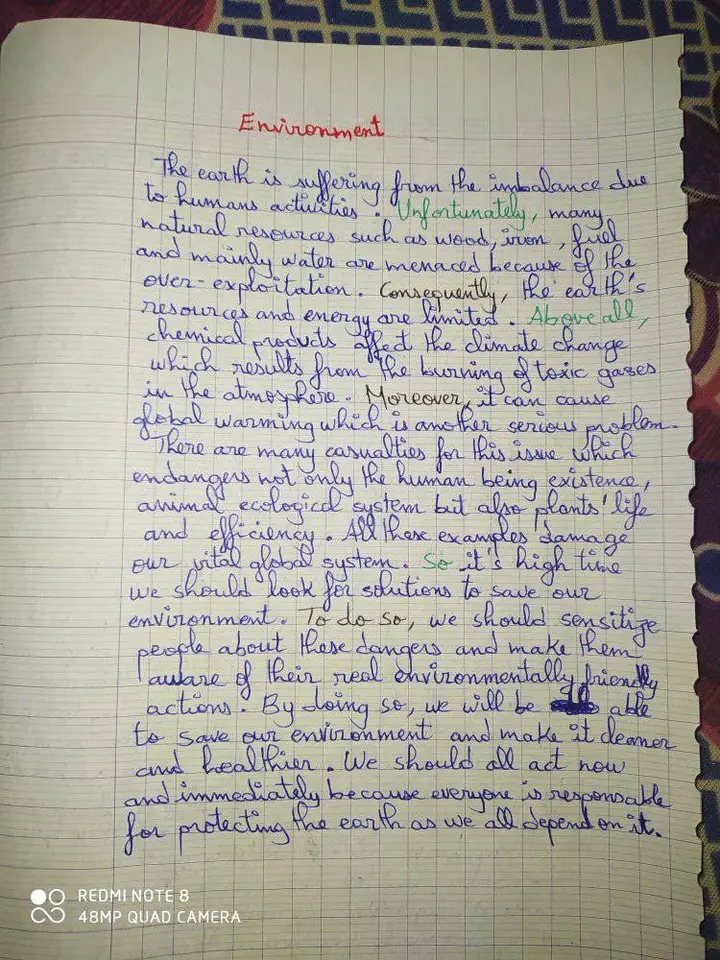 Environment
The earth is suffering from the imbalance due
to humans activities. Unfortunately, many
natural resources such as wood, iron, fuel
and mainly water are menaced because of the
over-exploitation. Consequently, the earth's
resources and energy are limited. Above all,
chemical products affect the climate change
which results from the burning of toxic gases
in the atmosphere. Moreover, it can cause
global warming which is another serious problem.
There are many casualties for this issue which
endangers not only the human being existence,
animal ecological system but also plants' life
and efficiency. All these examples damage
our vital global system. So it's high time
we should look for solutions to save our
environment. To do so, we should sensitize
people about these dangers and make them
aware of their real environmentally friendly
actions. By doing so, we will be able
to save our environment and make it cleaner
and healthier. We should all act now
and immediately because everyone is responsable
for protecting the earth as we all depend on it.
REDMI NOTE 8
48MP QUAD CAMERA